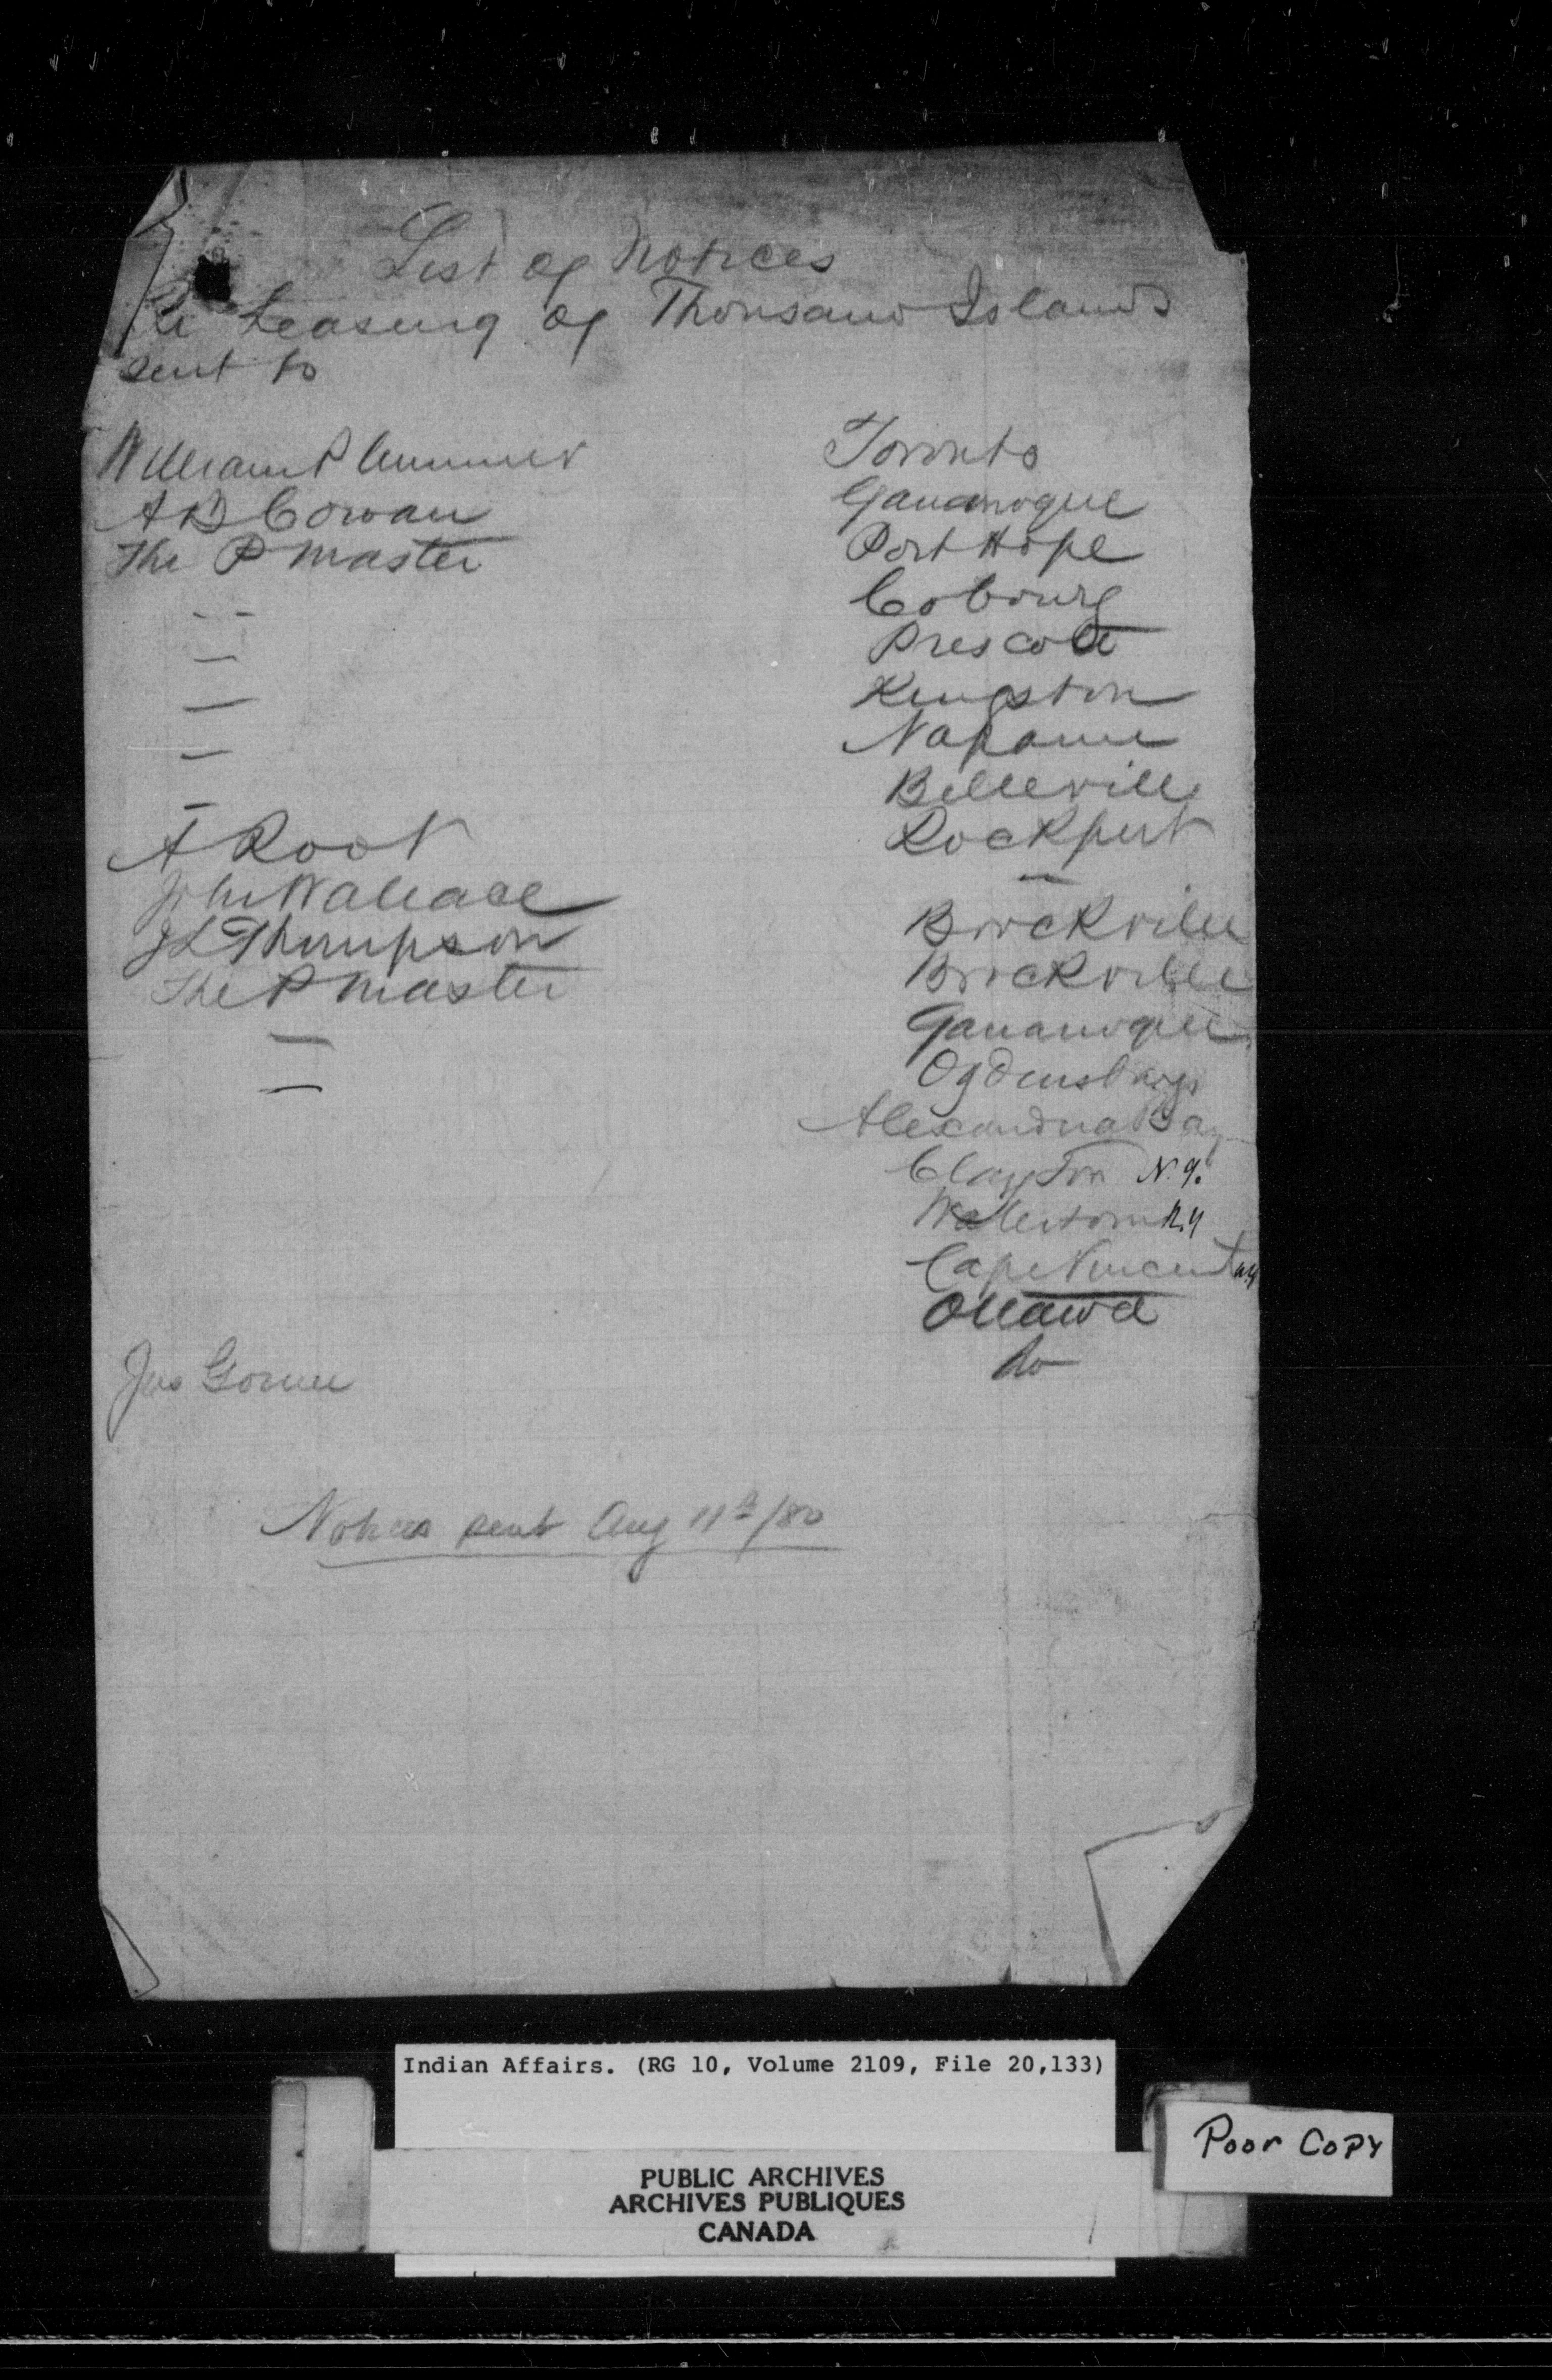 List of Notices
Re Leasing of Thousand Islands
sent to
William Plummer Toronto
A B Cowan Gananoque
The P Master Port Hope
— — Cobourg
— Prescott
— Kingston
— Napanee
— Belleville
A Root Rockport
John Wallace —
J L Thompson Brockville
The P Master Brockville
— Gananoque
— Ogdensburgh
Alexandria Bay
Clayton N.Y.
Watertown N.Y
Cape Vincent N.Y
Ottawa
Jas Do
Notices sent Aug 11th/80
Indian Affairs. (RG 10, Volume 2109, File 20,133)
Poor Copy
PUBLIC ARCHIVES
ARCHIVES PUBLIQUES
CANADA